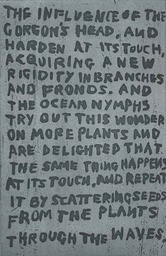 THE INFLUENCE OF THE
GORGON'S HEAD, AND
HARDEN AT ITS TOUCH,
ACQUIRING A NEW
RIGIDITY IN BRANCHES
AND FRONDS. AND
THE OCEAN NYMPHS
TRY OUT THIS WONDER
ON MORE PLANTS AND
ARE DELIGHTED THAT
THE SAME THING HAPPENS
AT ITS TOUCH, AND REPEAT
IT BY SCATTERING SEEDS
FROM THE PLANTS
THROUGH THE WAVES.